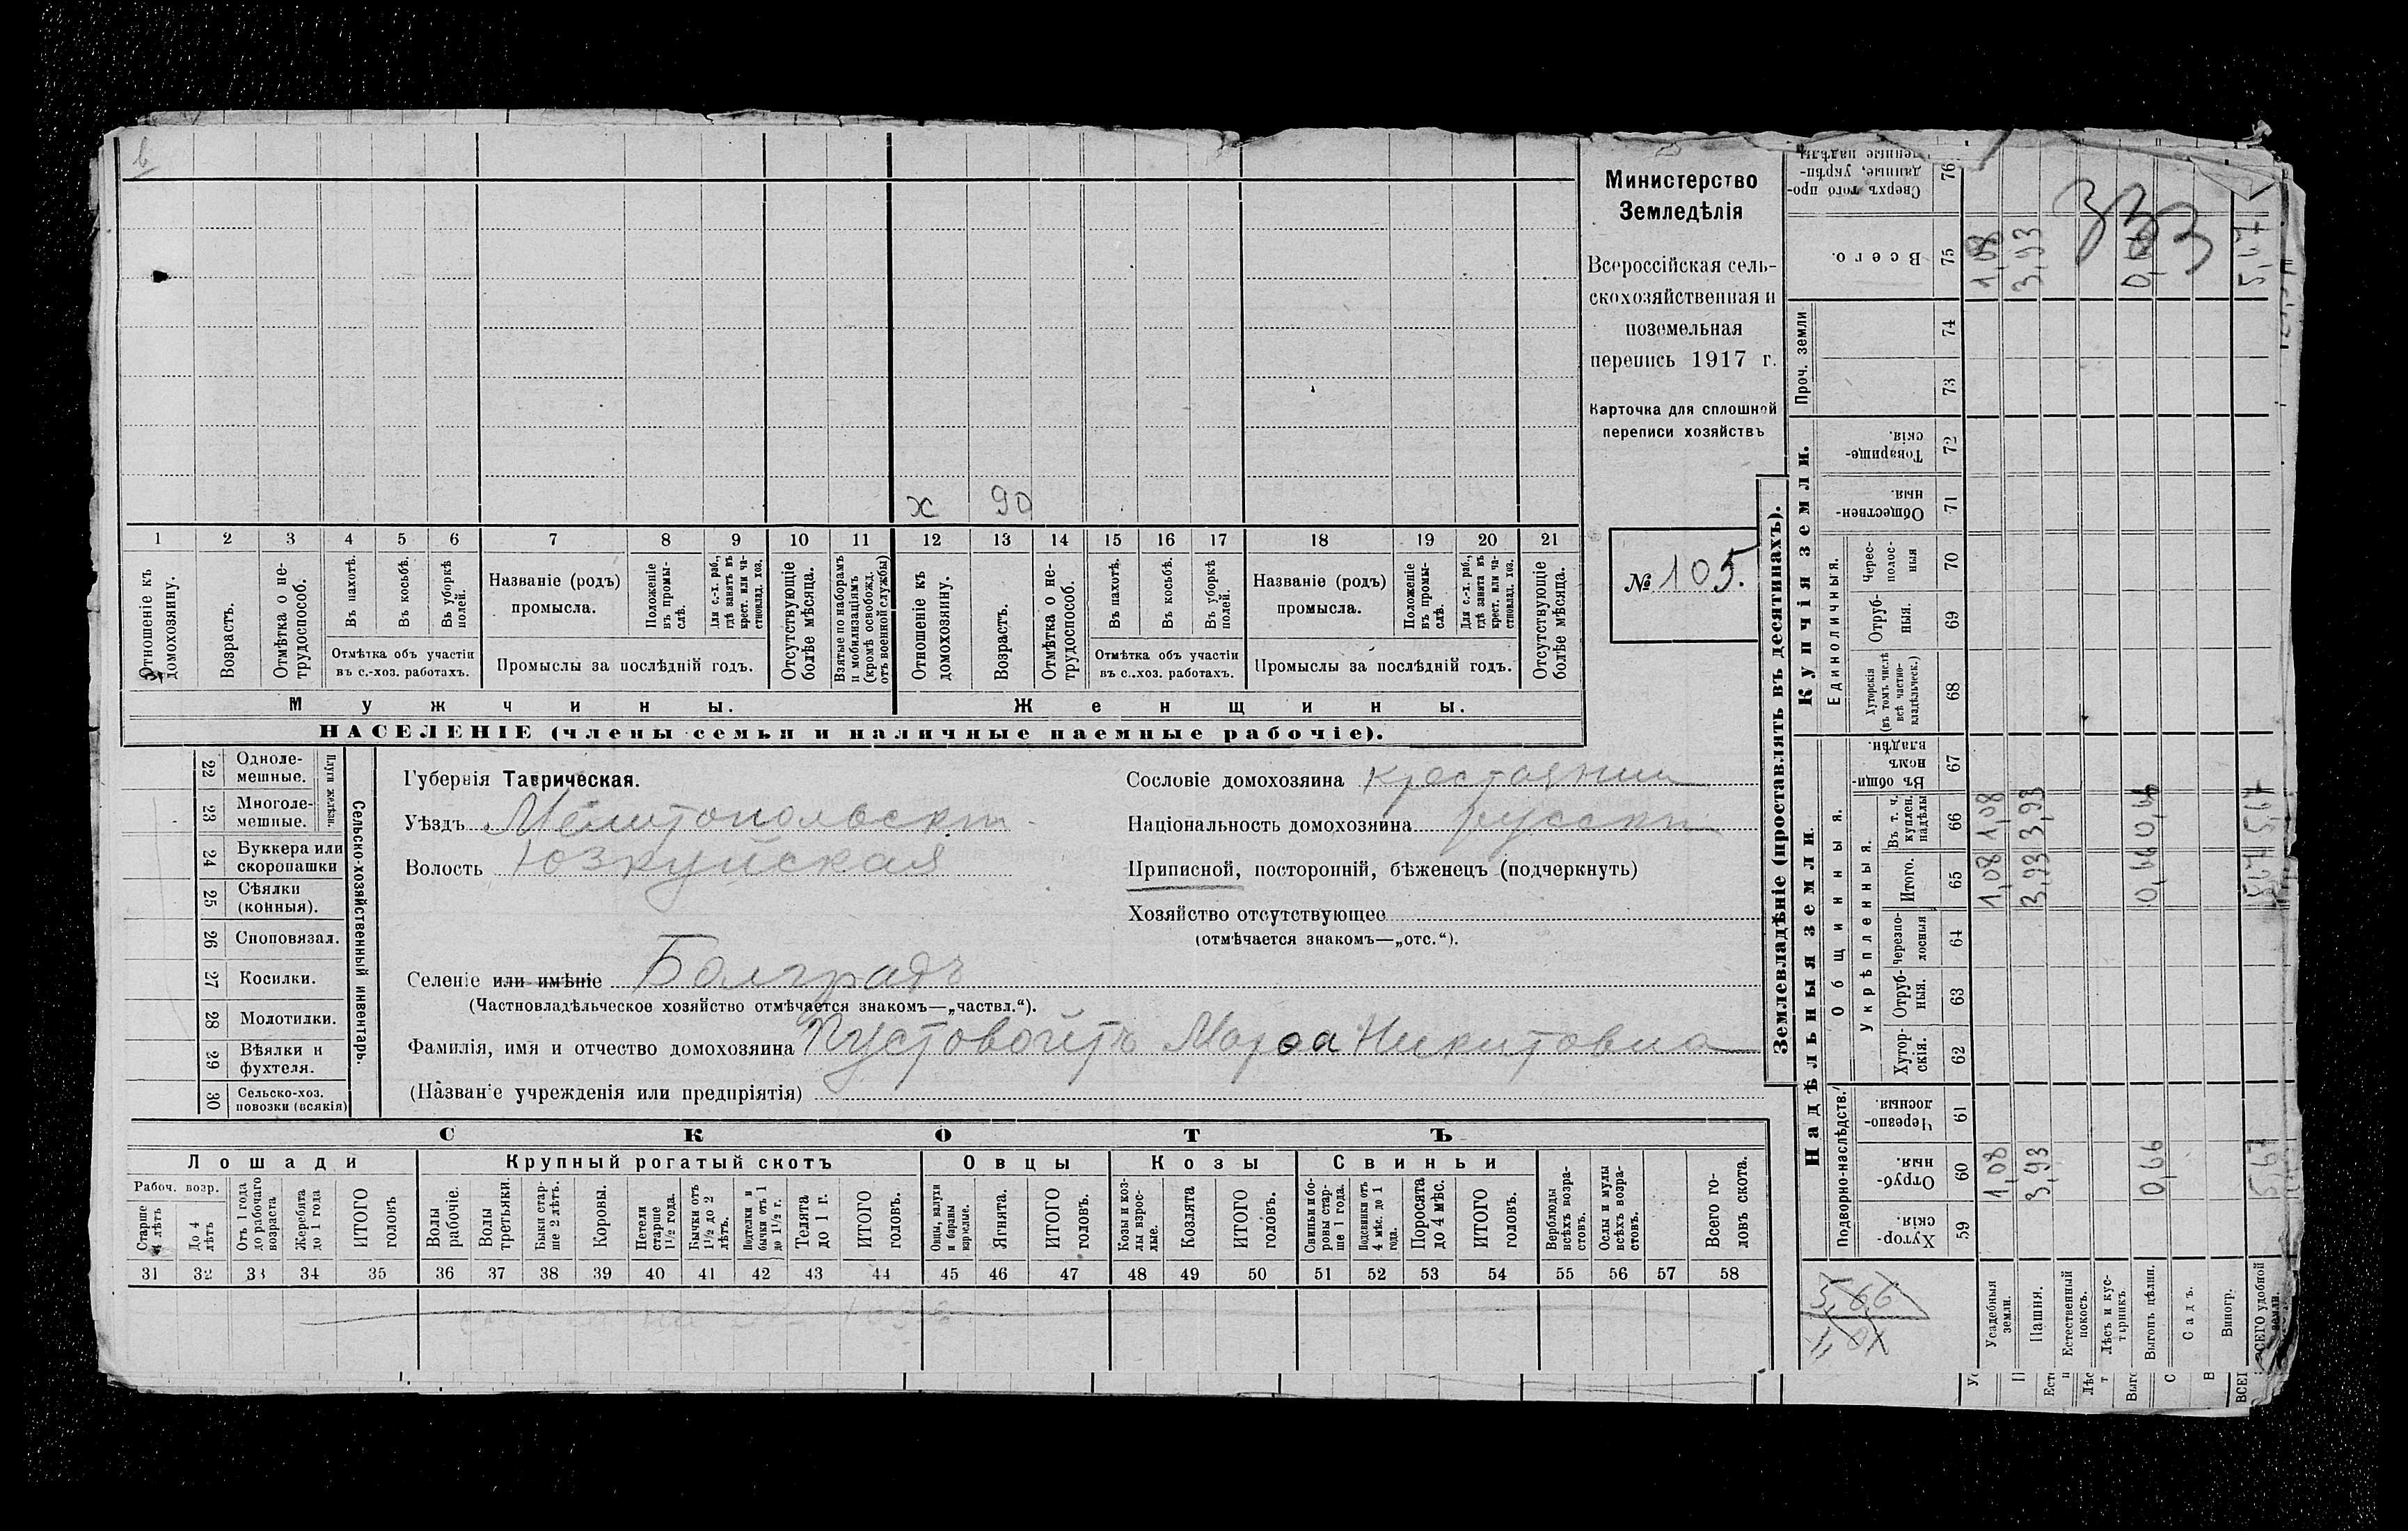 х 90
1 2 3 4 5 6 7 8 9 10 11 12 13 14 15 16 17 18 19 20 21
Отношеніе къ домохозяину.
Возрастъ.
Отмѣтка о не-
трудоспособ.
Въ пахотѣ.
Въ косьбѣ.
Въ уборкѣ
полей.
Отмѣтка объ участіи
въ с.-хоз. работахъ.
Названіе (родъ)
промысла.
Положеніе
въ промы-
слѣ.
Для с.-х. раб.,
гдѣ занятъ въ
крест. или ча-
стновлад. хоз.
Промыслы за послѣдній годъ.
Отсутствующіе
болѣе мѣсяца.
Взятые по наборамъ
и мобилизаціямъ
(кромѣ освобожд.
отъ военной службы)
Отношеніе къ
домохозяину.
Возрастъ.
Отмѣтка о не-
трудоспособ.
Въ пахотѣ.
Въ косьбѣ.
Въ уборкѣ
полей.
Отмѣтка объ участіи
въ с.-хоз. работахъ.
Названіе (родъ)
промысла.
Положеніе
въ промы-
слѣ.
Для с.-х. раб.,
гдѣ занята въ
крест. или ча-
стновлад. хоз.
Промыслы за послѣдній годъ.
Отсутствующіе
болѣе мѣсяца.
Мужчины. Женщины.
НАСЕЛЕНІЕ (члены семьи и наличные наемные рабочіе).
Министерство
Земледѣлія
Всероссійская сель-
скохозяйственная и
поземельная
перепись 1917 г.
Карточка для сплошной
переписи хозяйствъ
№ 105.
22 Одноле-
мешные.
23 Многоле-
мешные.
Плуги желѣзн.
24 Буккера или
скоропашки
25 Сѣялки
(конныя).
26 Сноповязал.
27 Косилки.
28 Молотилки.
29 Вѣялки и
фухтеля.
30 Сельско-хоз.
повозки (всякія)
Сельско-хозяйственный инвентарь.
Губернія Таврическая.
Уѣздъ Мелитопольскій
Волость Юзкуйская
Селеніе или имѣніе Болградъ
(Частновладѣльческое хозяйство отмѣчается знакомъ—„частвл.“).
Фамилія, имя и отчество домохозяина Пустовойтъ Марѳа Никитовна
(Названіе учрежденія или предпріятія)
Сословіе домохозяина крестьянин
Національность домохозяина русскій
Приписной, посторонній, бѣженецъ (подчеркнуть)
Хозяйство отсутствующее
(отмѣчается знакомъ—„отс.“).
СКОТЪ
Лошади
Крупный рогатый скотъ
Овцы
Козы
Свиньи
Рабоч. возр.
Старше
4 лѣтъ
До 4
лѣтъ
Отъ 1 года
до рабочаго
возраста
Жеребята
до 1 года
ИТОГО
головъ
Волы
рабочіе.
Волы
третьяки.
Быки стар-
ше 2 лѣтъ.
Коровы.
Нетели
старше
1½ года.
Бычки отъ
1½ до 2
лѣтъ.
Подтелки и
бычки отъ 1
до 1½ г.
Телята
до 1 г.
ИТОГО
головъ.
Овцы, валухи
и бараны
взрослые.
Ягнята.
ИТОГО
головъ.
Козы и коз-
лы взрос-
лые.
Козлята
ИТОГО
головъ.
Свиньи и бо-
ровы стар-
ше 1 года.
Подсвинки отъ
4 мѣс. до 1
года.
Поросята
до 4 мѣс.
ИТОГО
головъ.
Верблюды
всѣхъ возра-
стовъ.
Ослы и мулы
всѣхъ возра-
стовъ.
Всего го-
ловъ скота.
31 32 33 34 35 36 37 38 39 40 41 42 43 44 45 46 47 48 49 50 51 52 53 54 55 56 57 58
Землевладѣніе (проставлять въ десятинахъ).
Сверхъ того про-
данные, укрѣп-
ленные надѣлы
76
Всего.
75
1,08
3,93
0,66
5,67
33
3
Проч. земли
74
73
Купчія земли.
Товарище-
скія.
72
Обществен-
ныя.
71
Единоличныя.
Черес-
полос-
ныя
70
Отруб-
ныя.
69
Хуторскія
(въ томъ числѣ
всѣ частно-
владѣльческ.)
68
Надѣльныя земли
Общинныя.
Въ общи-
номъ
владѣн.
67
Укрѣпленныя.
Въ т. ч.
куплен.
надѣлы
66
1,08
3,93
0,66
5,67
Итого.
65
1,08
3,93
0,66
5,67
Черезпо-
лосныя
64
Отруб-
ныя.
63
Хутор-
скія.
62
Подворно-наслѣдств.
Черезпо-
лосныя.
61
Отруб-
ныя.
60
1,08
3,93
0,66
5,67
Хутор-
скія.
59
5,66
Усадебныя
земли.
Пашня.
Естественный
покосъ.
Лѣсъ и кус-
тарникъ.
Выгонъ цѣлин.
Садъ.
Виногр.
ВСЕГО удобной
земли.